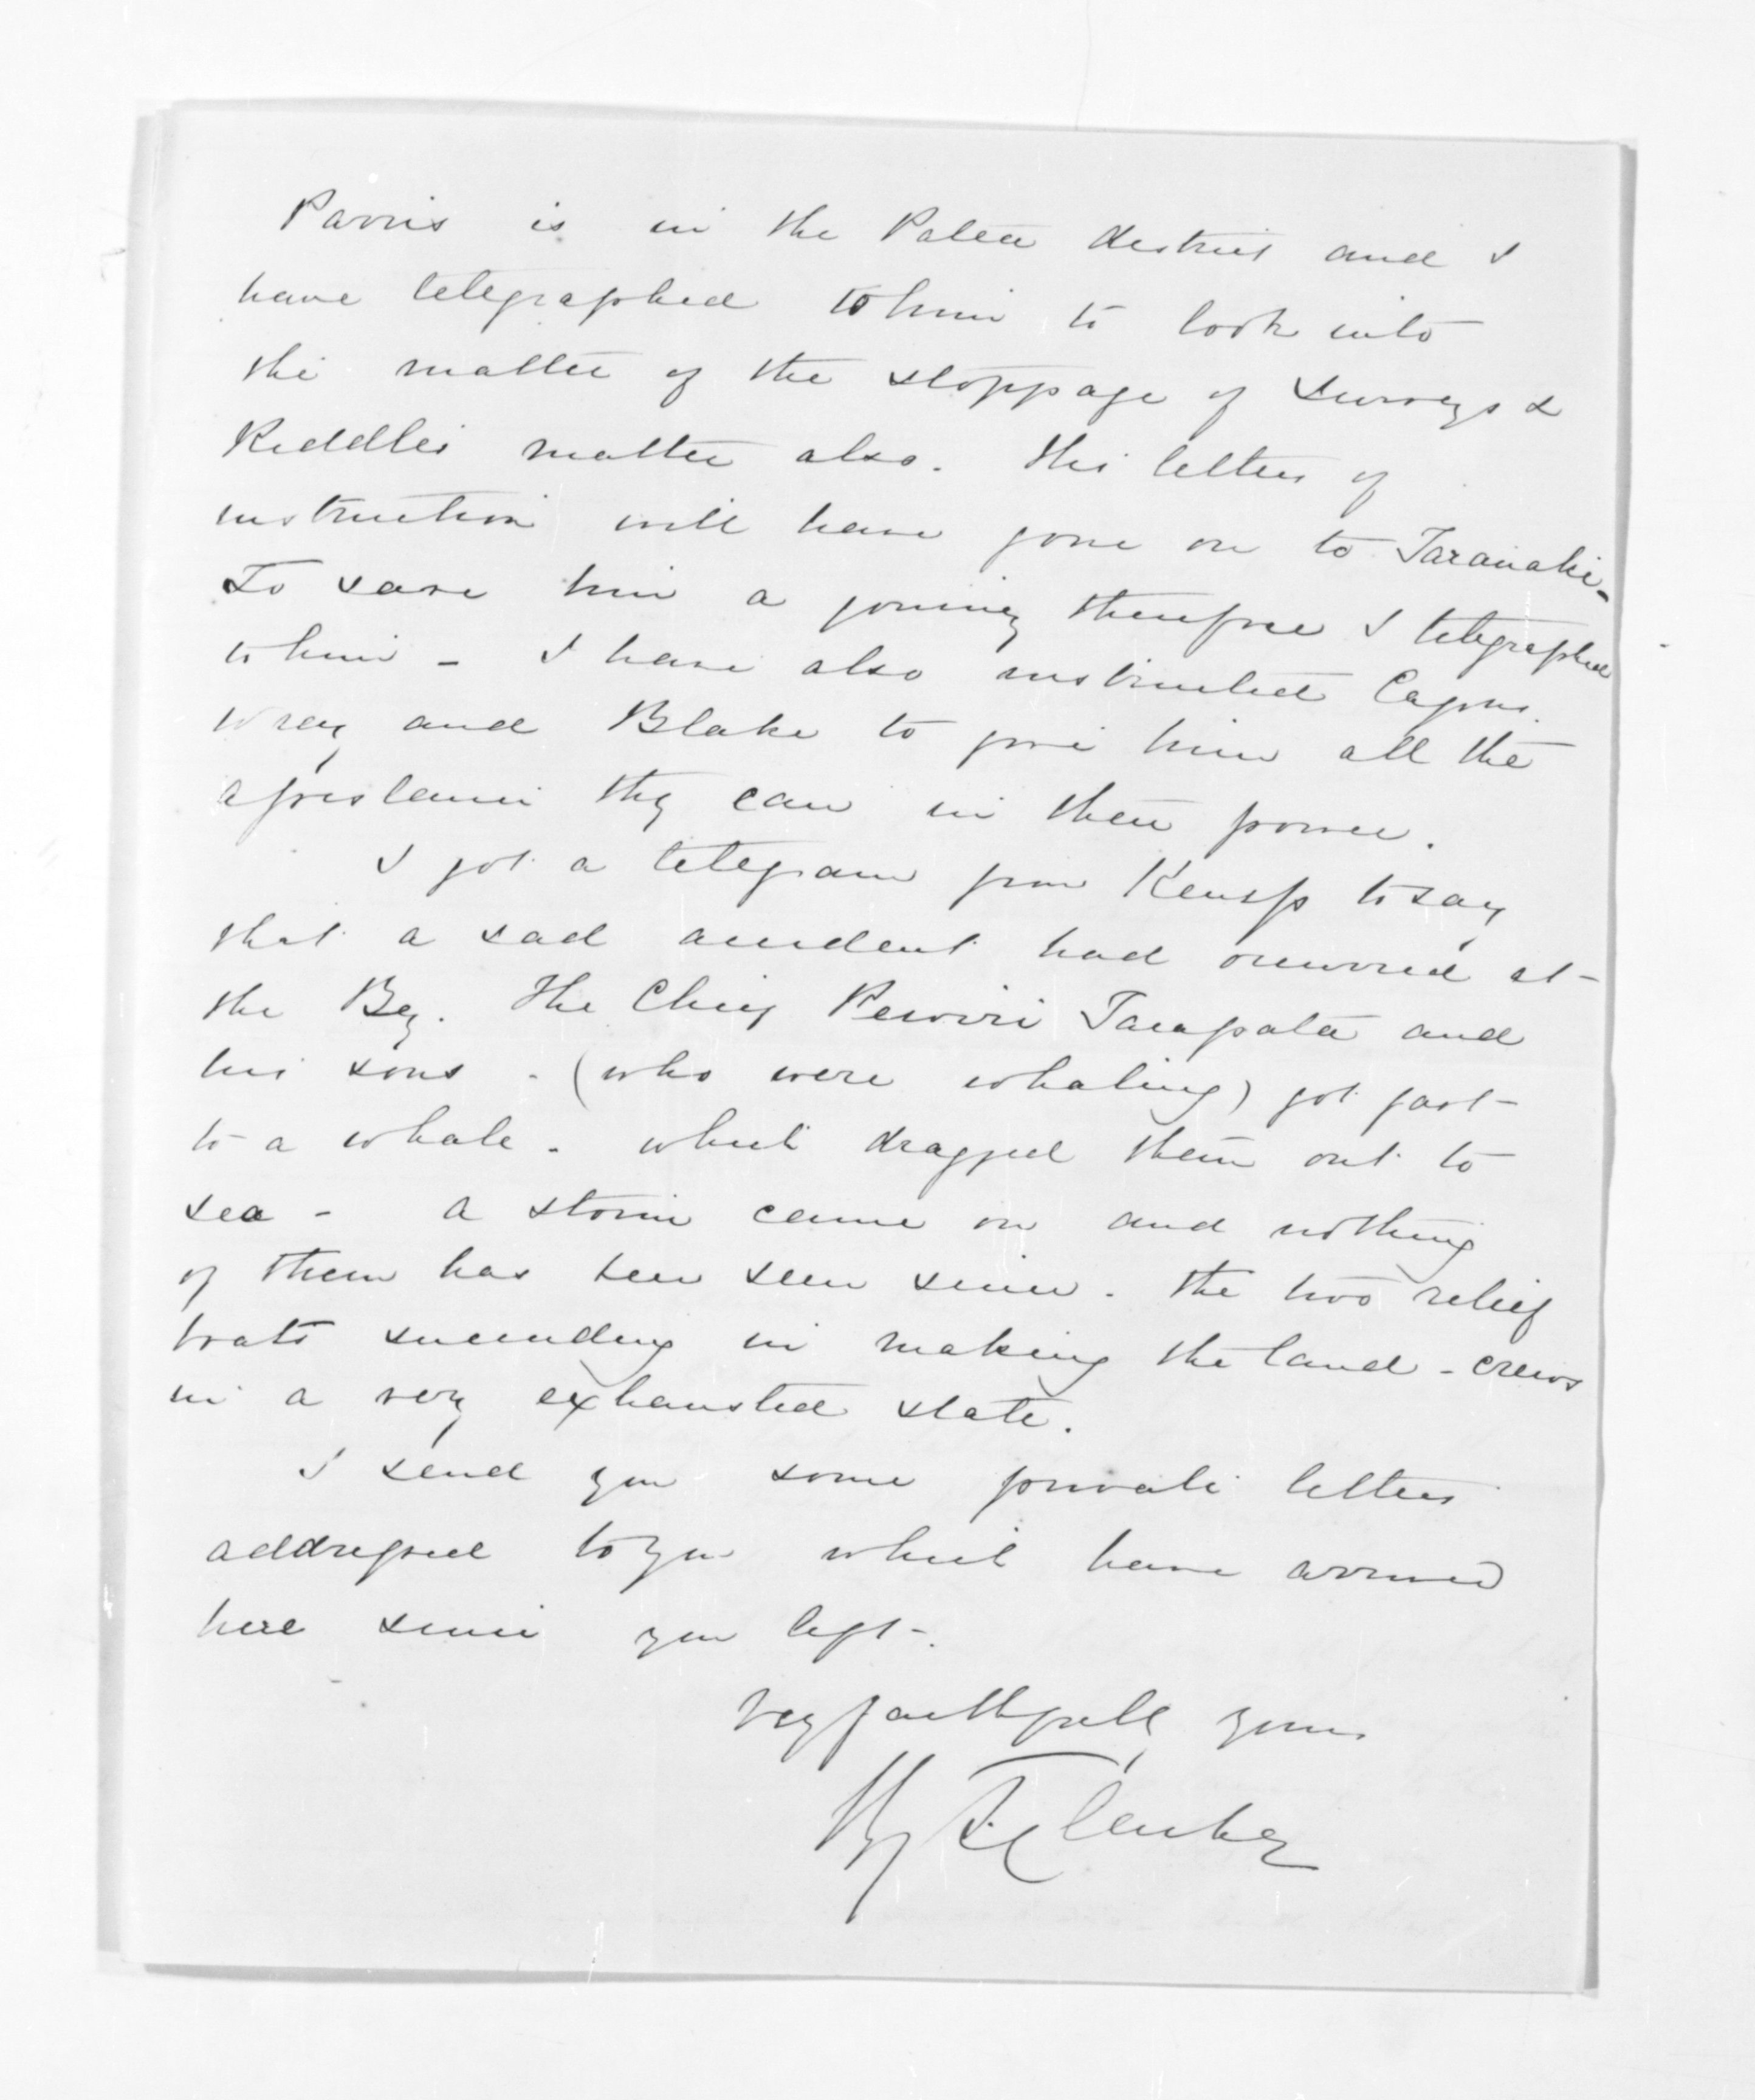 Parris is in the Patea district and I
have telegraphed to him to look into
the matter of the stoppage of surveys &
Riddles matter also. His letters of
instruction will have gone on to Taranaki -
To save him a journey therefore I telegraphed
to him - I have also instructed Captns.
Wray and Blake to give him all the
assistance they can in their power.
I got a telegram from Kemp to say
that a sad accident had occurred at
the Bay. The Chief Rewiri Tarapata and
his sons - (who were whaling) got fast
to a whale - which dragged them out to
sea - a storm came on and nothing
of them has been seen since. The two relief
boats succeeding in making the land - crews
in a very exhausted state.
I send you some private letters
addressed to you which have arrived
here since you left -.
Very faithfully yours
H. T. Clarke